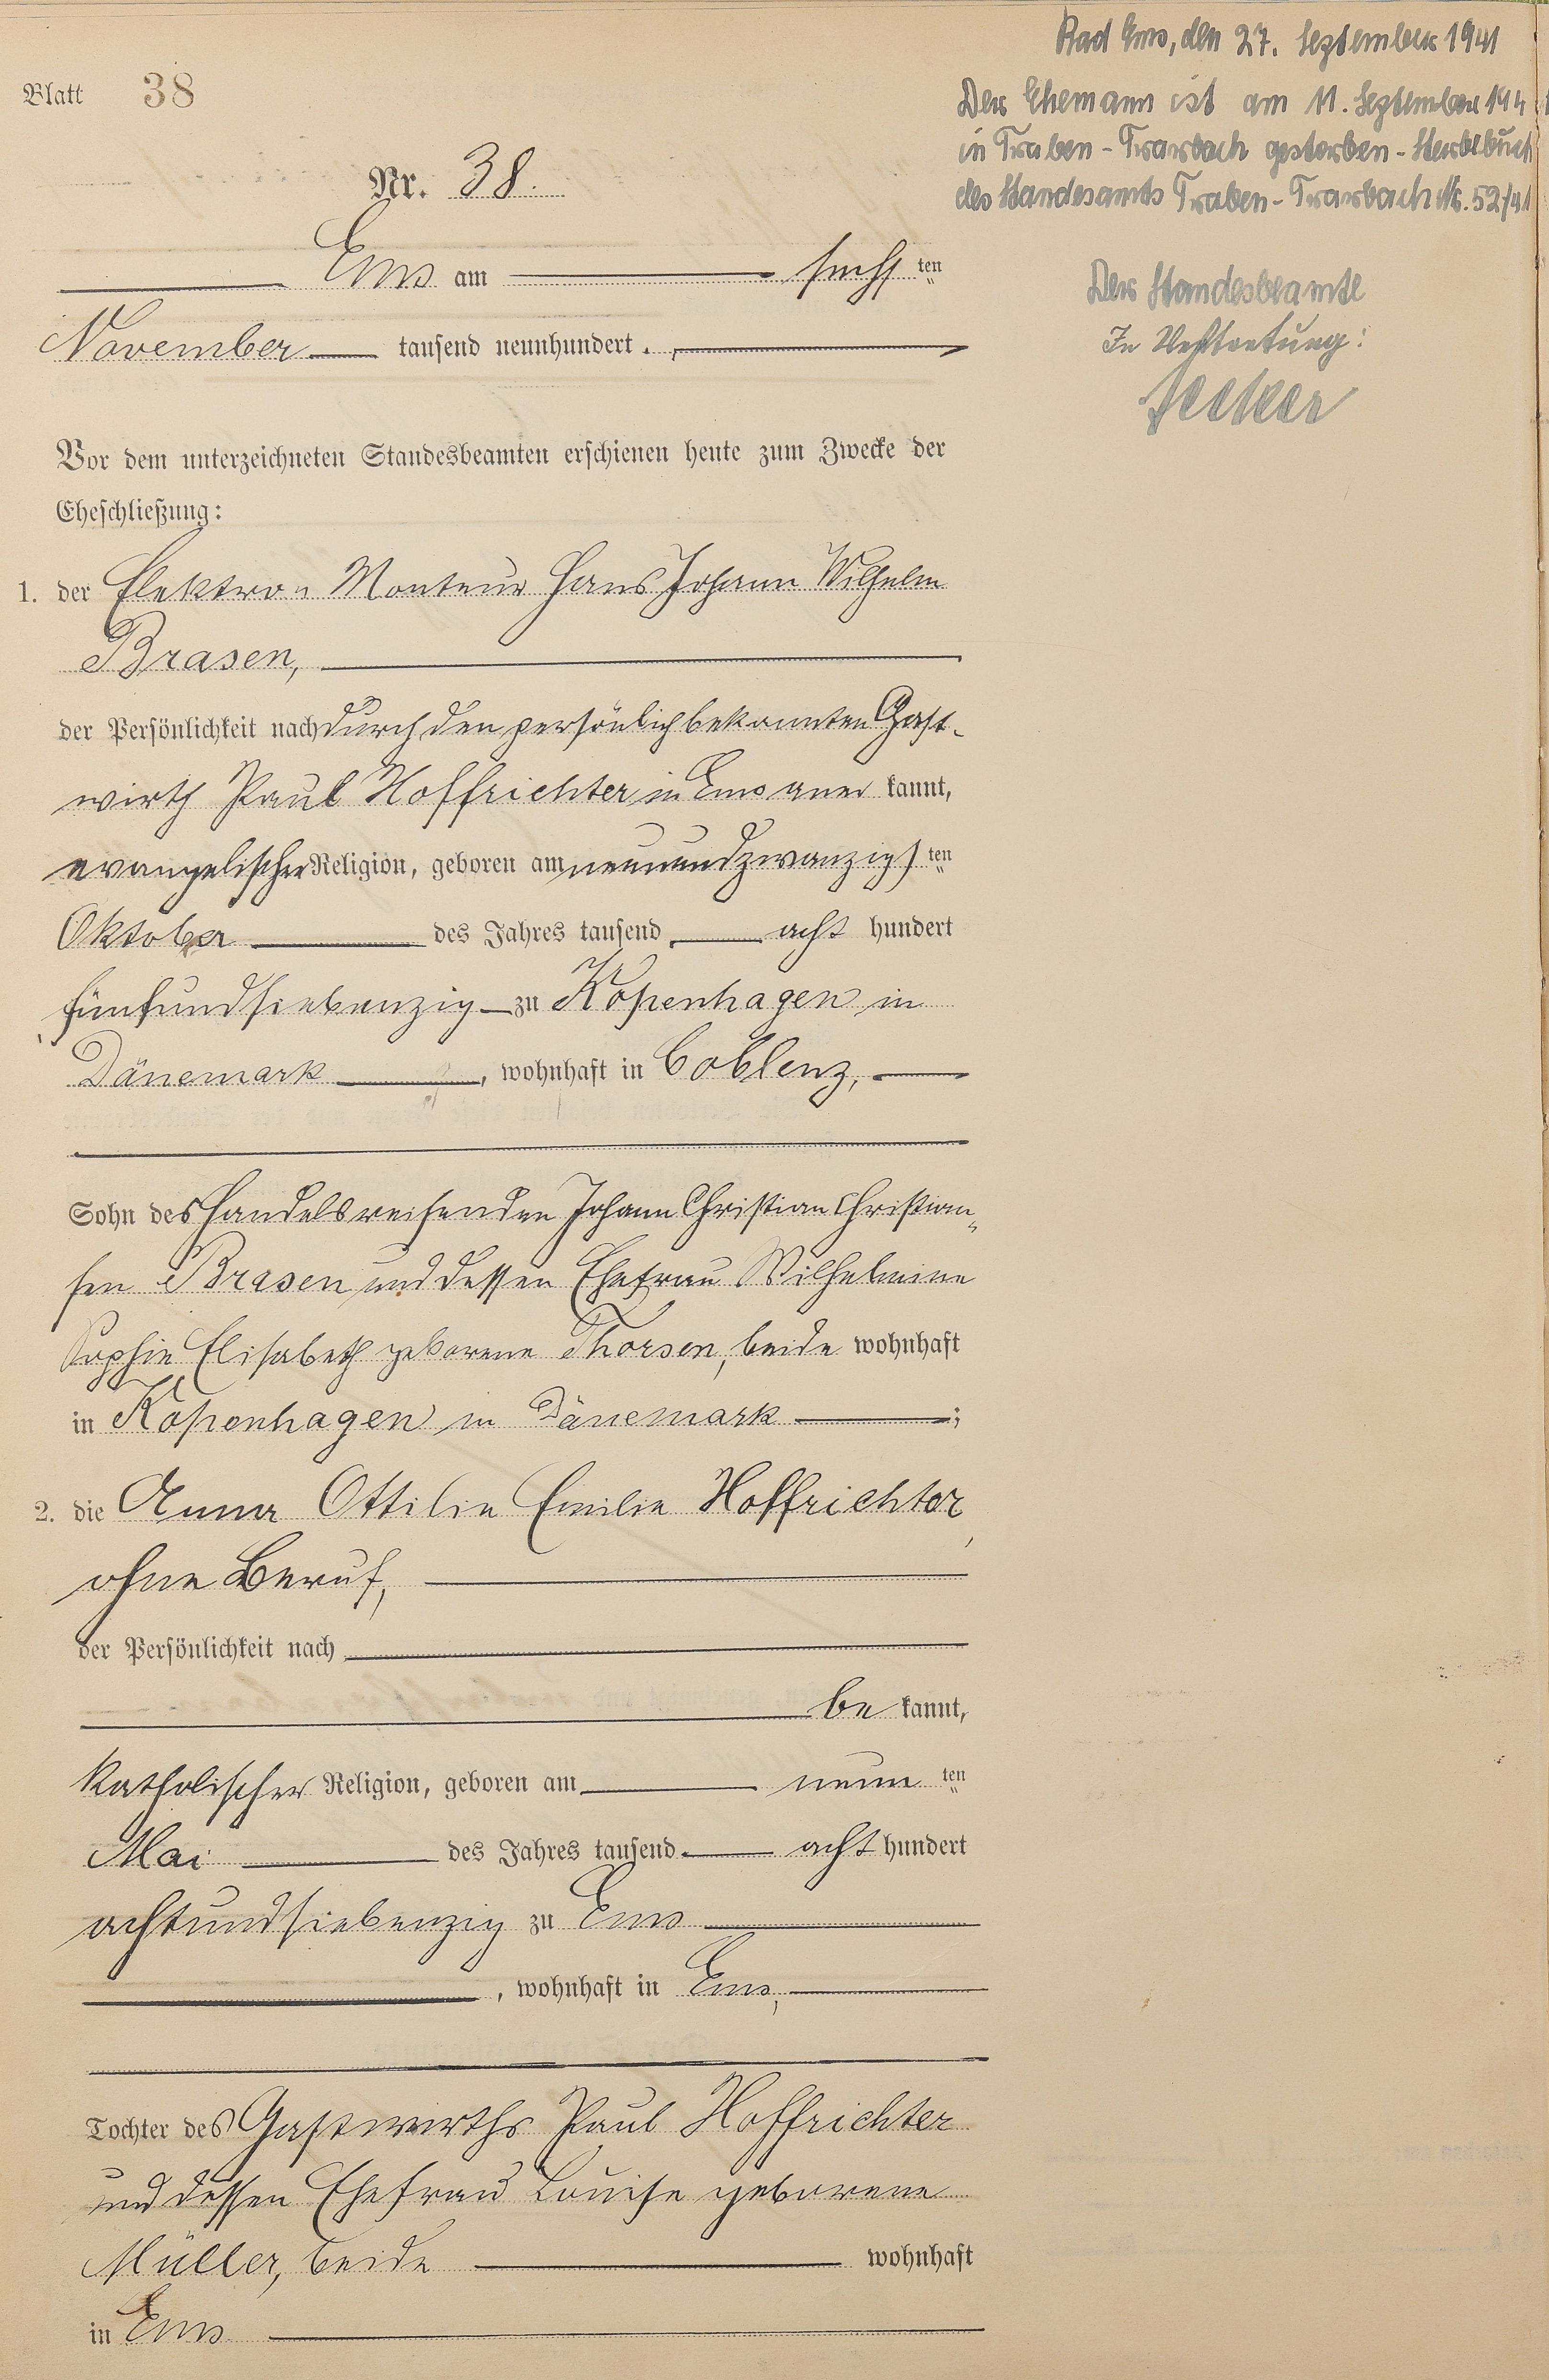 Blatt 38
Nr. 38.
Ems am sechsten
November tausend neunhundert.
Vor dem unterzeichneten Standesbeamten erschienen heute zum Zwecke der
Eheschließung:
1. der Elektro-Monteur Hans Johann Wilhelm
Brasen,
der Persönlichkeit nach durch den persönlich bekannten Gast-
wirth Paul Hoffrichter in Ems aner kannt,
evangelischer Religion, geboren am neunundzwanzigsten
Oktober des Jahres tausend acht hundert
fünfundsiebenzig zu Kopenhagen in
Dänemark, wohnhaft in Coblenz,
Sohn des Handelsreisenden Johann Christian Christian-
sen Brasen und dessen Ehefrau Wilhelmine
Sophie Elisabeth geborene Thorsen, beide wohnhaft
in Kopenhagen in Dänemark;
2. die Anna Ottilie Emilie Hoffrichter,
ohne Beruf,
der Persönlichkeit nach
be kannt,
katholischer Religion, geboren am neunten
Mai des Jahres tausend acht hundert
achtundsiebenzig zu Ems
, wohnhaft in Ems,
Tochter des Gastwirths Paul Hoffrichter
und dessen Ehefrau Louise geborene
Müller, beide wohnhaft
in Ems
Bad Ems, den 27. September 1941
Der Ehemann ist am 11. September 1941
in Traben-Trarbach gestorben - Sterbebuch
des Standesamts Traben-Trarbach Nr. 52/41
Der Standesbeamte
In Vertretung: